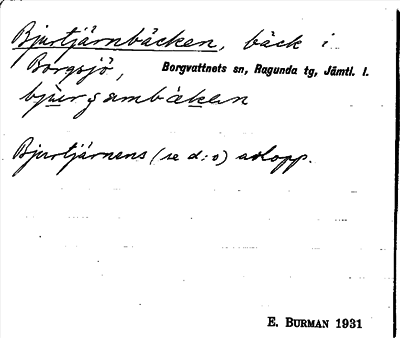 Bjurtjärnbäcken, bäck i
Borgsjö, Borgvattnets sn, Ragunda tg, Jämtl. l.
Bjurtjärnens (se d:o) avlopp.
E. BURMAN 1931